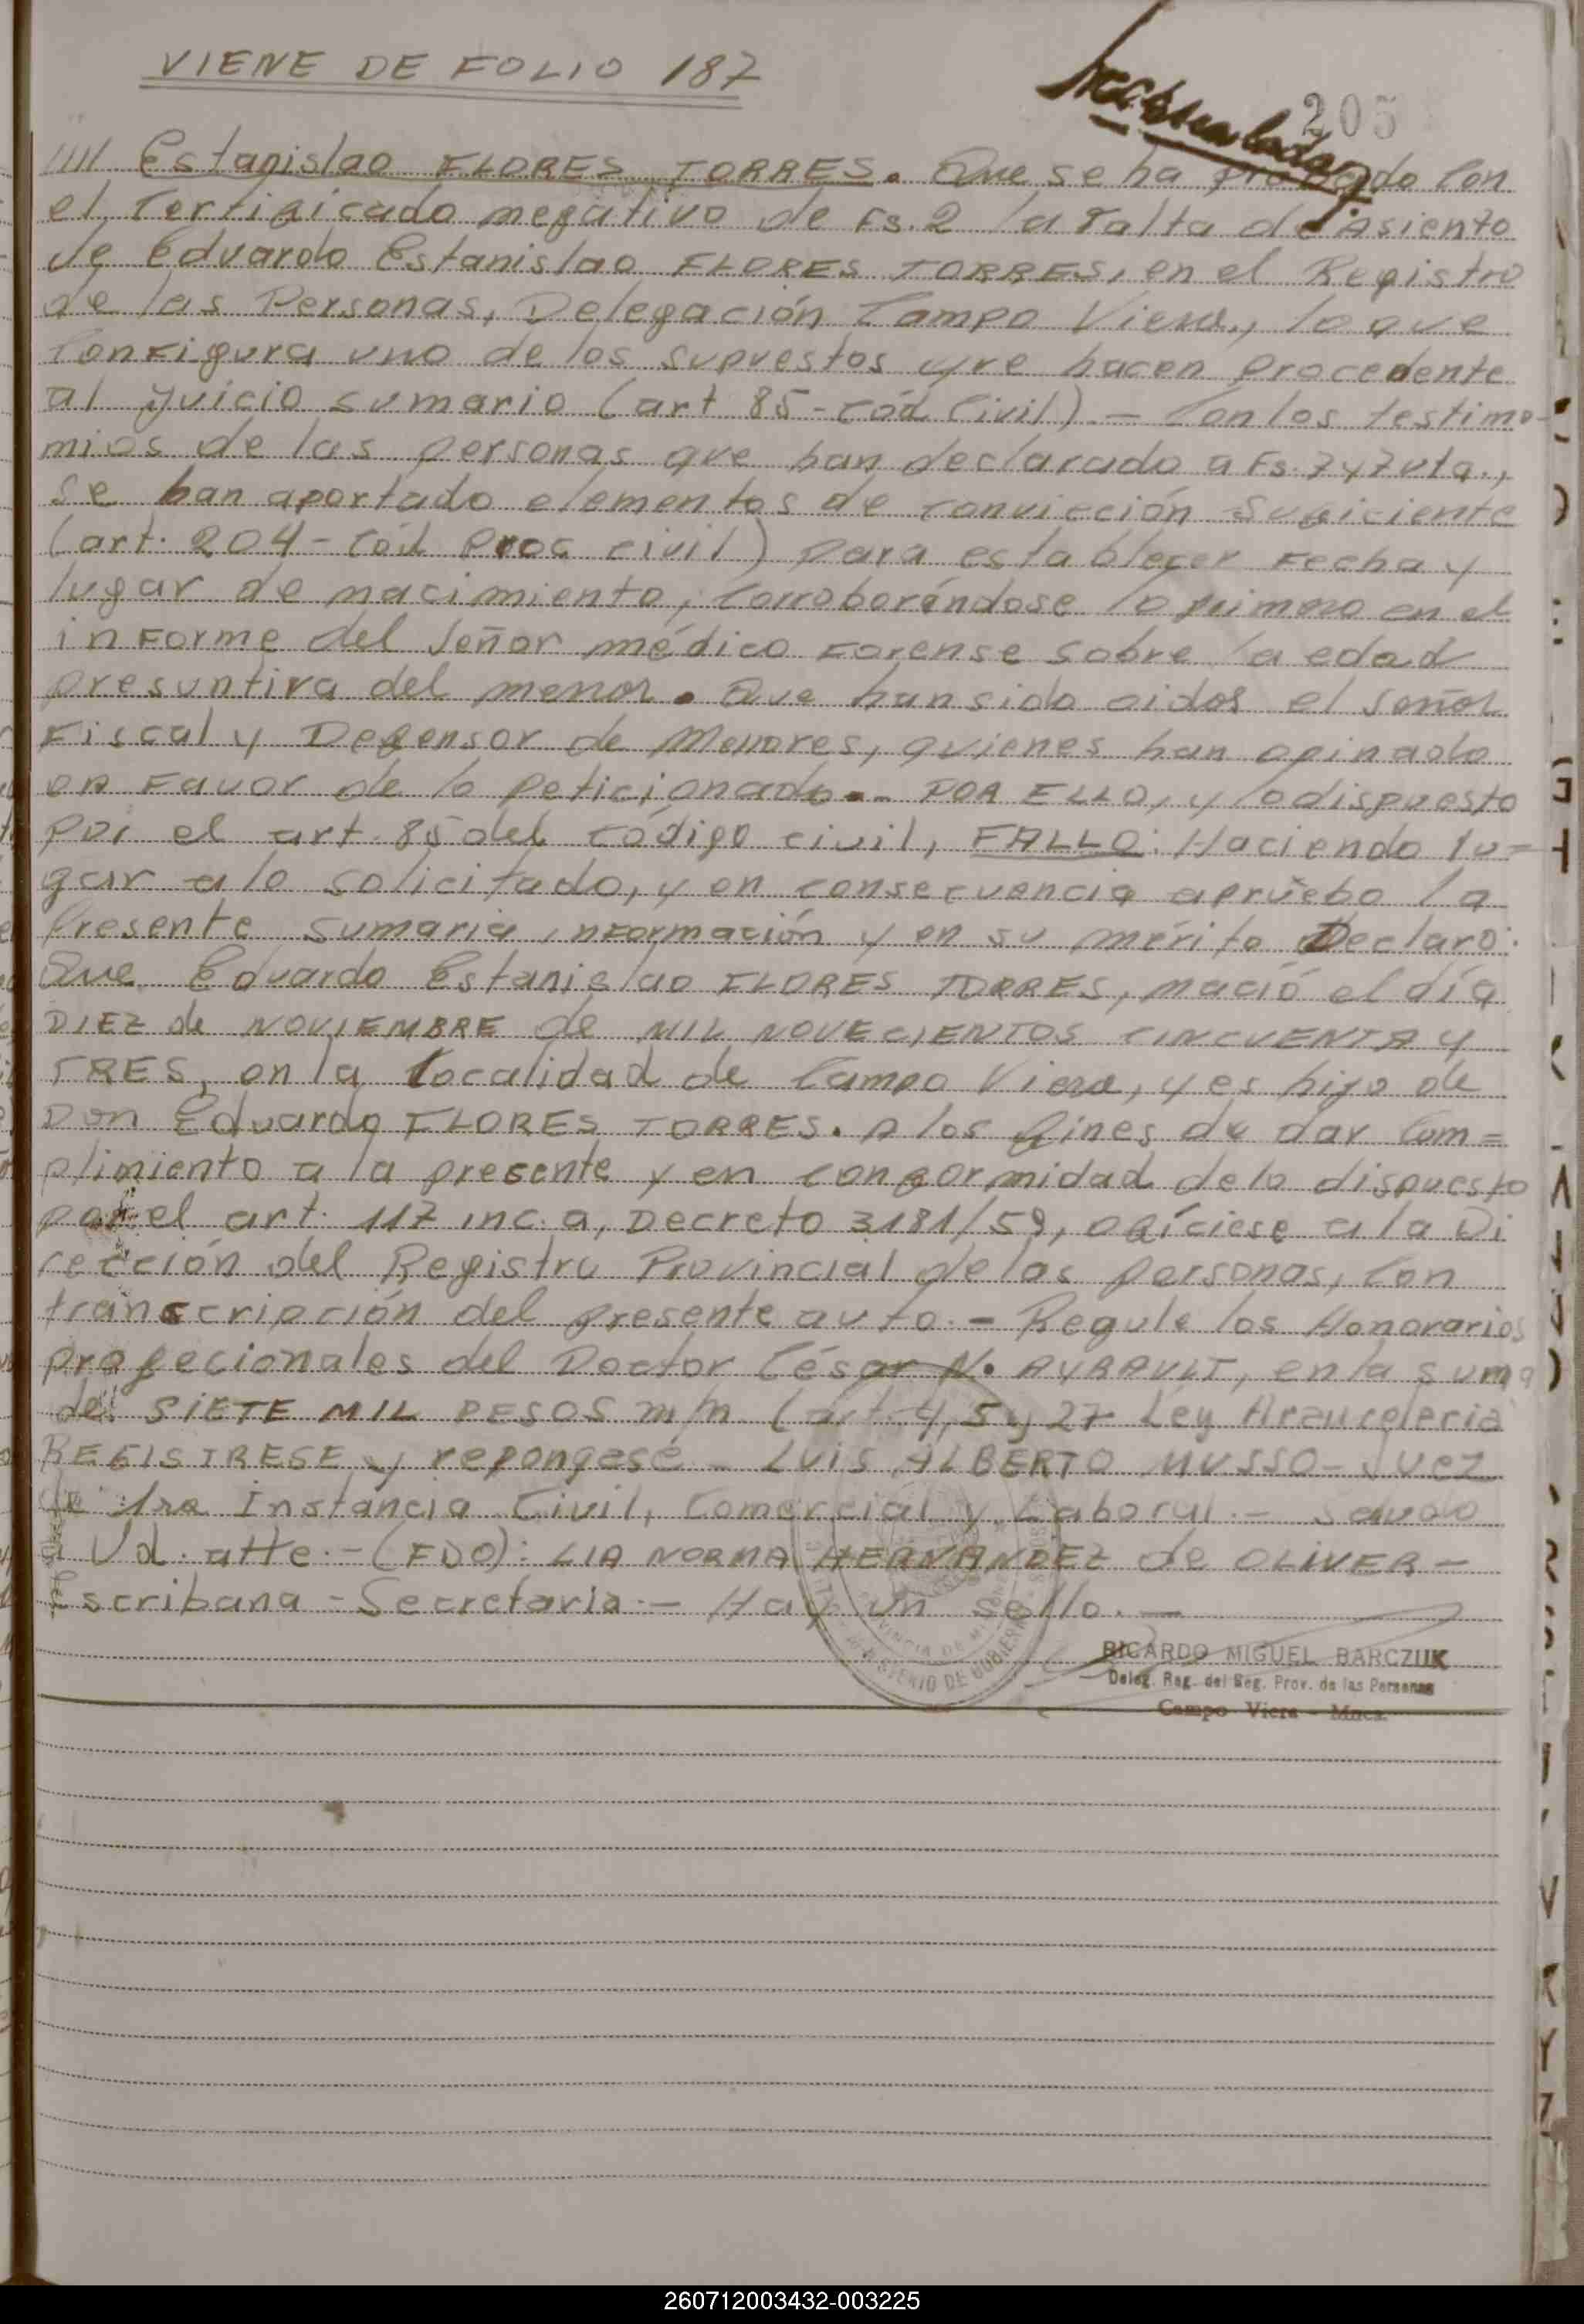 VIENE DE FOLIO 187
205
//// Estanislao FLORES TORRES. Que se ha probado con
el Certificado negativo de Fs. 2 la Falta de Asiento
de Eduardo Estanislao FLORES TORRES, en el Registro
de las Personas, Delegación Campo Viera, lo que
Configura uno de los supuestos que hacen procedente
al Juicio sumario (art 85 - Cód Civil). - Con los testimo-
nios de las personas que han declarado a Fs. 7 y 7 vta.,
se han aportado elementos de convicción suficiente
(art. 204 - Cód Proc civil) para establecer Fecha y
lugar de nacimiento, Corroborándose lo primero en el
inForme del Señor médico Forense sobre la edad
presuntiva del menor. Que han sido oidos el señor
Fiscal y Defensor de Menores, quienes han opinado
en Favor de lo peticionado.- POR ELLO, y lo dispuesto
por el art. 85 del Código civil, FALLO: Haciendo lu=
gar a lo solicitado, y en consecuencia apruebo la
Presente sumaria inFormación y en su mérito Declaro:
Que Eduardo Estanislao FLORES TORRES, nació el día
DIEZ de NOVIEMBRE de MIL NOVECIENTOS CINCUENTA Y
TRES, en la Localidad de Campo Viera, y es hijo de
Don Eduardo FLORES TORRES. A los fines de dar Cum=
plimiento a la presente y en conformidad de lo dispuesto
por el art. 117 inc. a, Decreto 3181/59, ofíciese a la Di
rección del Registro Provincial de las personas, Con
transcripción del presente auto. - Regule los Honorarios
profecionales del Doctor César N. AYRAULT, en la suma
de SIETE MIL PESOS m/n (art. 4, 5 y 27 Ley Aranceleria
REGISTRESE y repongase - LUIS ALBERTO MUSSO - Juez
de 1ra Instancia Civil, Comercial y Laboral. - Saludo
a Ud. atte. - (FDO): LIA NORMA HERNANDEZ de OLIVER -
Escribana - Secretaria. - Hay un sello. -
RICARDO MIGUEL BARCZUK
Deleg. Reg. del Reg. Prov. de las Personas
Campo Viera - Mnes.
MINISTERIO DE GOBIERNO
260712003432-003225